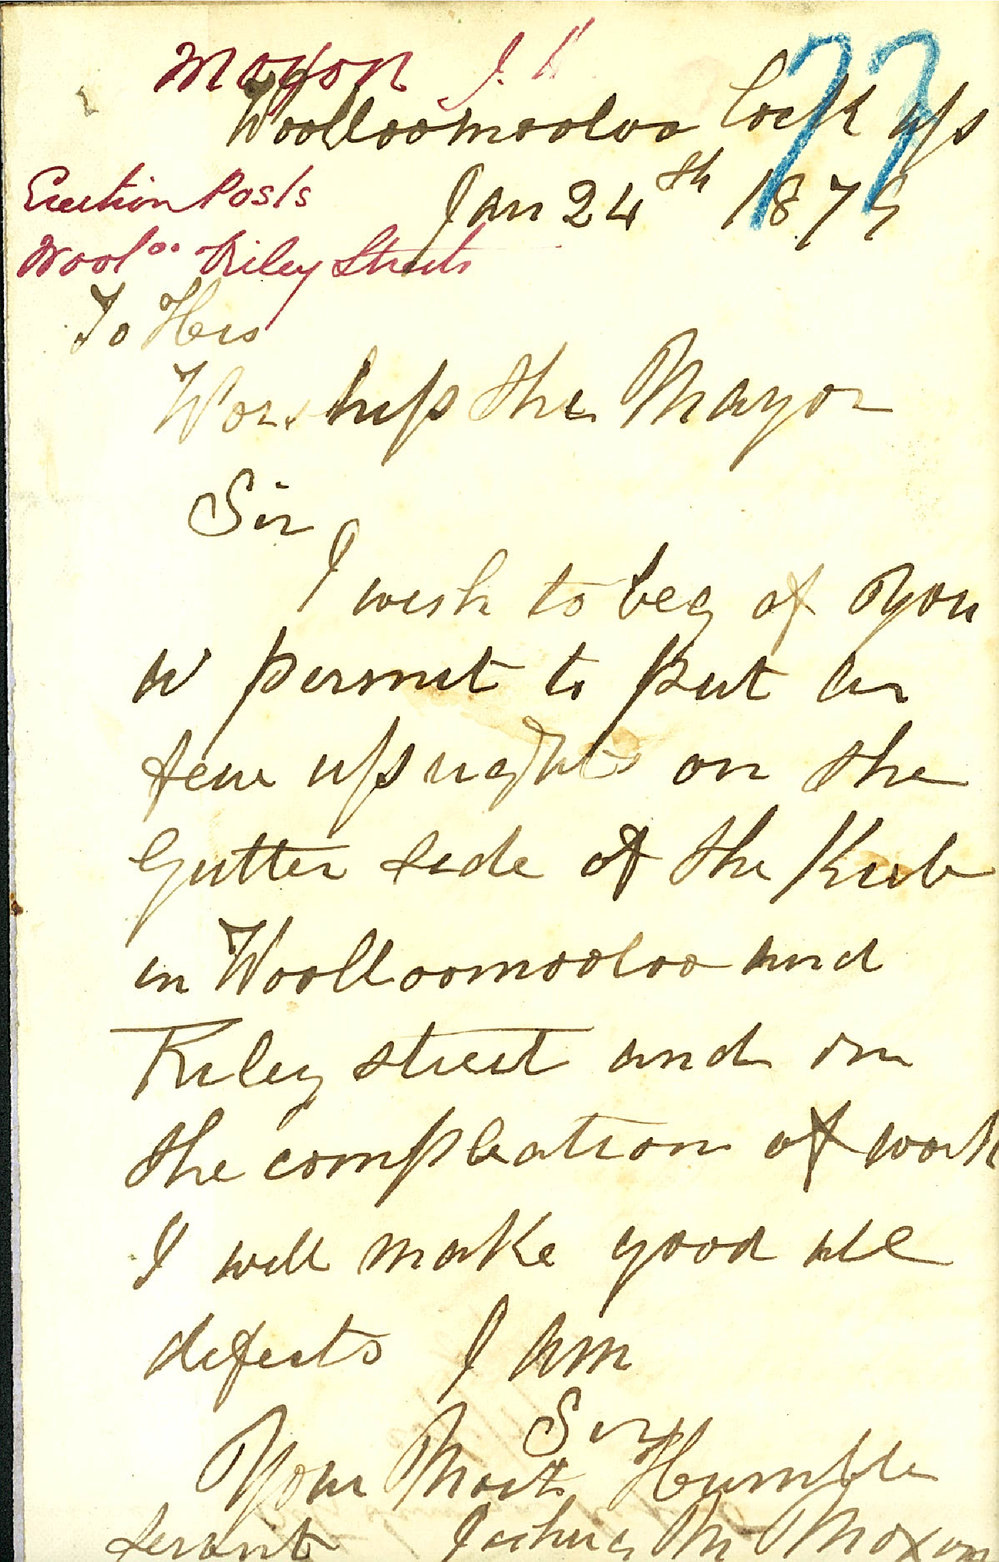 Mayor
77
Woolloomooloo Lock ups
Erection Posts
Jan 24th 1879
Wool oo Riley Streets
To His
Worship the Mayor
Sir
I wish to beg of you
a permit to put a
few uprights on the
Gutter side of the Kirb
in Woolloomooloo and
Riley street and on
the compleation of work
I will make good all
defects I am
Sir
Your Most Humble
servant Joshua M Moxon